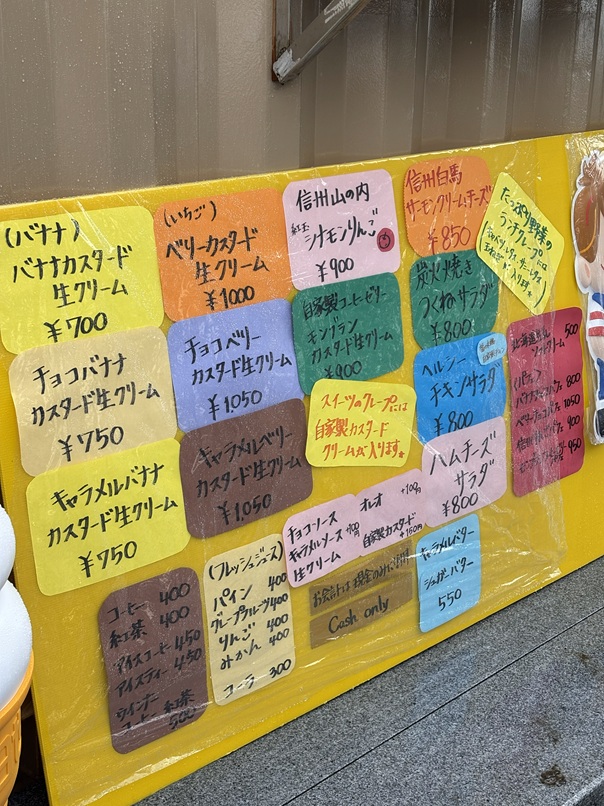 (バナナ)
バナナカスタード
生クリーム
¥700
チョコバナナ
カスタード生クリーム
¥750
キャラメルバナナ
カスタード生クリーム
¥750
(いちご)
ベリーカスタード
生クリーム
¥1000
チョコベリー
カスタード生クリーム
¥1,050
キャラメルベリー
カスタード生クリーム
¥1,050
信州山の内
紅玉
シナモンりんご
¥900
自家製コーヒーゼリー
モンブラン
カスタード生クリーム
¥900
スイーツのクレープには
自家製カスタード
クリームが入ります。
信州白馬
サーモンクリームチーズ
¥850
炭火焼き
つくねサラダ
¥800
ヘルシー
チキンサラダ
¥800
ハムチーズ
サラダ
¥800
たっぷり野菜の
ランチクレープには
入ります。
北海道
ソフトクリーム 500
(パフェ)
800
1050
900
950
チョコソース
キャラメルソース +100円
生クリーム
オレオ +100円
自家製カスタード
+150円
キャラメルバター
シュガーバター
550
お会計は現金のみ
Cash only
コーヒー 400
紅茶 400
アイスコーヒー 450
アイスティー 450
ウインナー
コーヒー 紅茶
500
(フレッシュジュース)
パイン 400
グレープフルーツ 400
りんご 400
みかん 400
コーラ 300